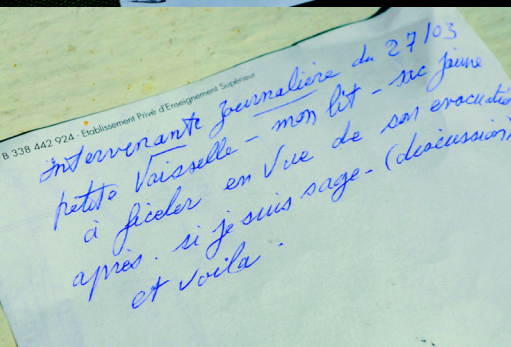 B 338 442 924 - Etablissement Privé d'Enseignement Supérieur
intervenante journalière du 27/03
petite Vaisselle - mon lit - sac jaune
à ficeler en vue de son evacuatio
après. si je suis sage - (discussion)
et voila.